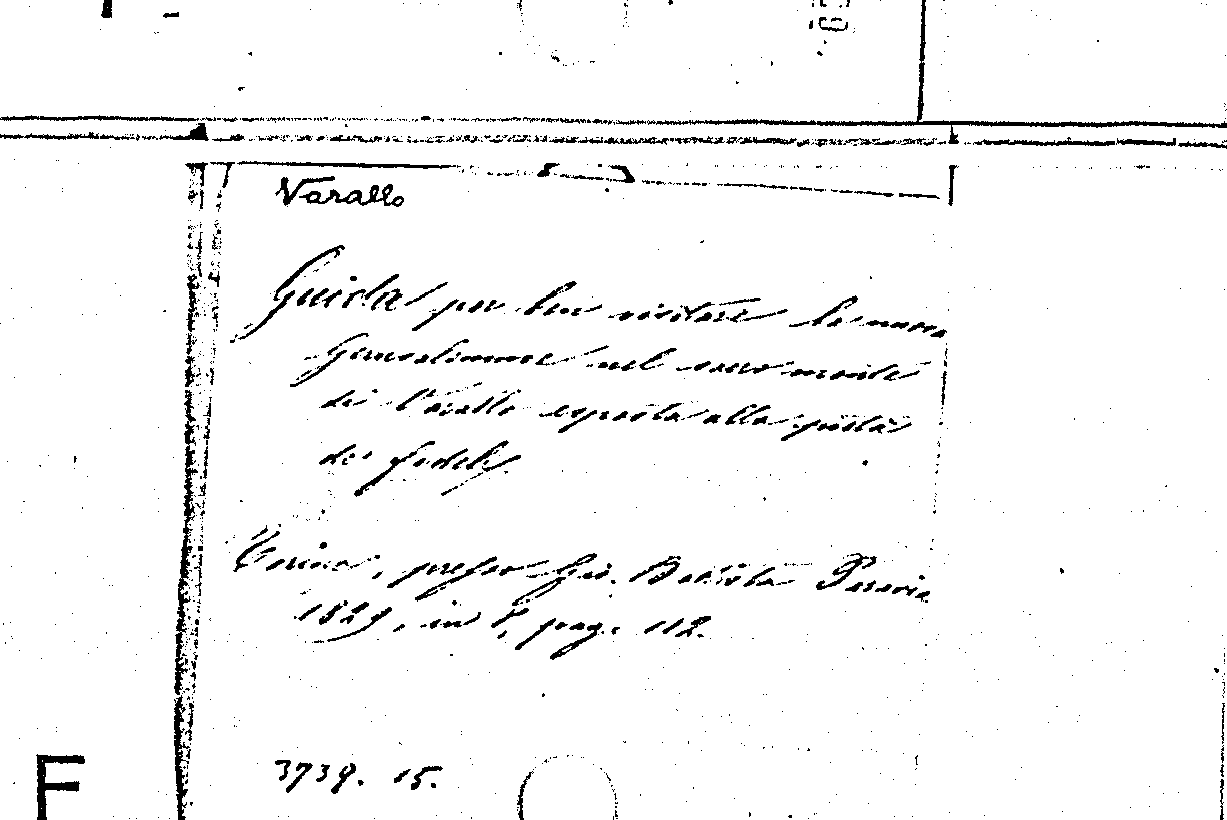 Varallo
Guida per ben visitare la nuova
Gerusalemme nel sacro monte
di Varallo esposta alla pietà
dei fedeli
Torino, presso Gio. Battista Paravia
1829, in 8, pag. 112.
3739. 15.
F